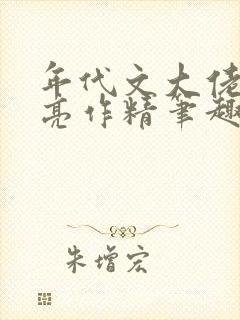 年代文大佬
亮作精笔趣
朱增宏